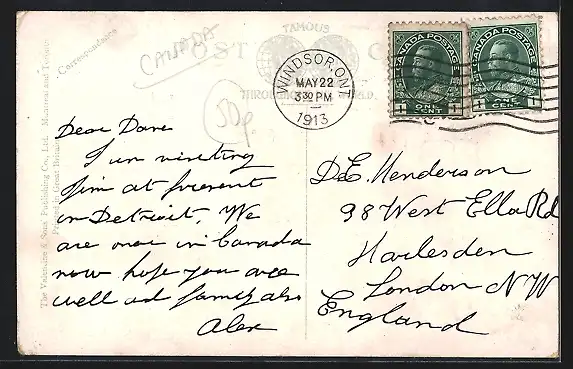 CANADA
50p.
Correspondence
POST C
FAMOUS
THROUGHOUT WORLD.
WINDSOR, ONT.
MAY 22
3 30 PM
1913
CANADA POSTAGE
1 ONE CENT 1
CANADA POSTAGE
1 ONE CENT 1
The Valentine & Sons Publishing Co., Ltd. Montreal and Toronto
Printed in Great Britain
Dear Dave
I um visiting
Jim at present
in Detroit. We
are over in Canada
now hope you are
well ad family also
Alex
D.E. Henderson
98 West Ella Rd
Harlesden
London NW
England